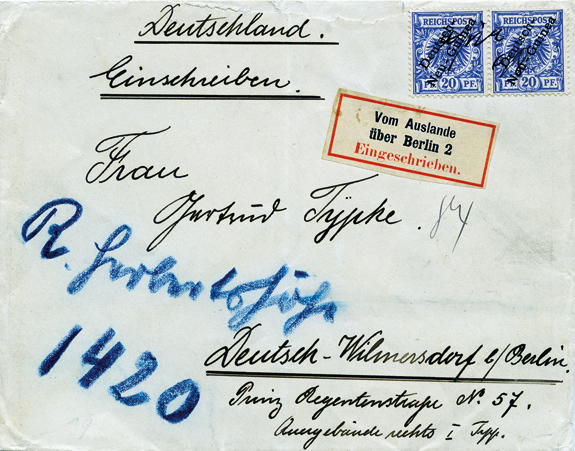 Deutschland.
REICHSPOST REICHSPOST
Deutsch- Deutsch-
Neu-Guinea Neu-Guinea
20 PF. 20 PF.
Einschreiben.
Vom Auslande
über Berlin 2
Eingeschrieben.
Frau
Gertrud Typke.
R. Herbertshöhe
1420
Deutsch-Wilmersdorf b/Berlin.
Prinz Regentenstraße N. 57.
rechts I Trp.